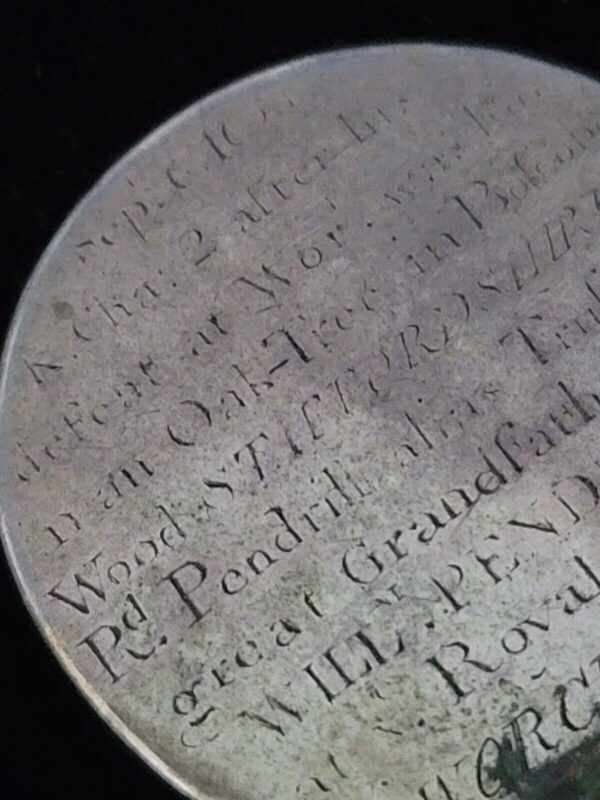 Sep. 6. 16
K. Cha: 2 after his
defeat at Wor: was
in an Oak-Tree in Boscob
Wood STAFFORDSHIR
Rd. Pendrill alias Tru
great Grandfath
WILL. PEND
at Royal
WORC